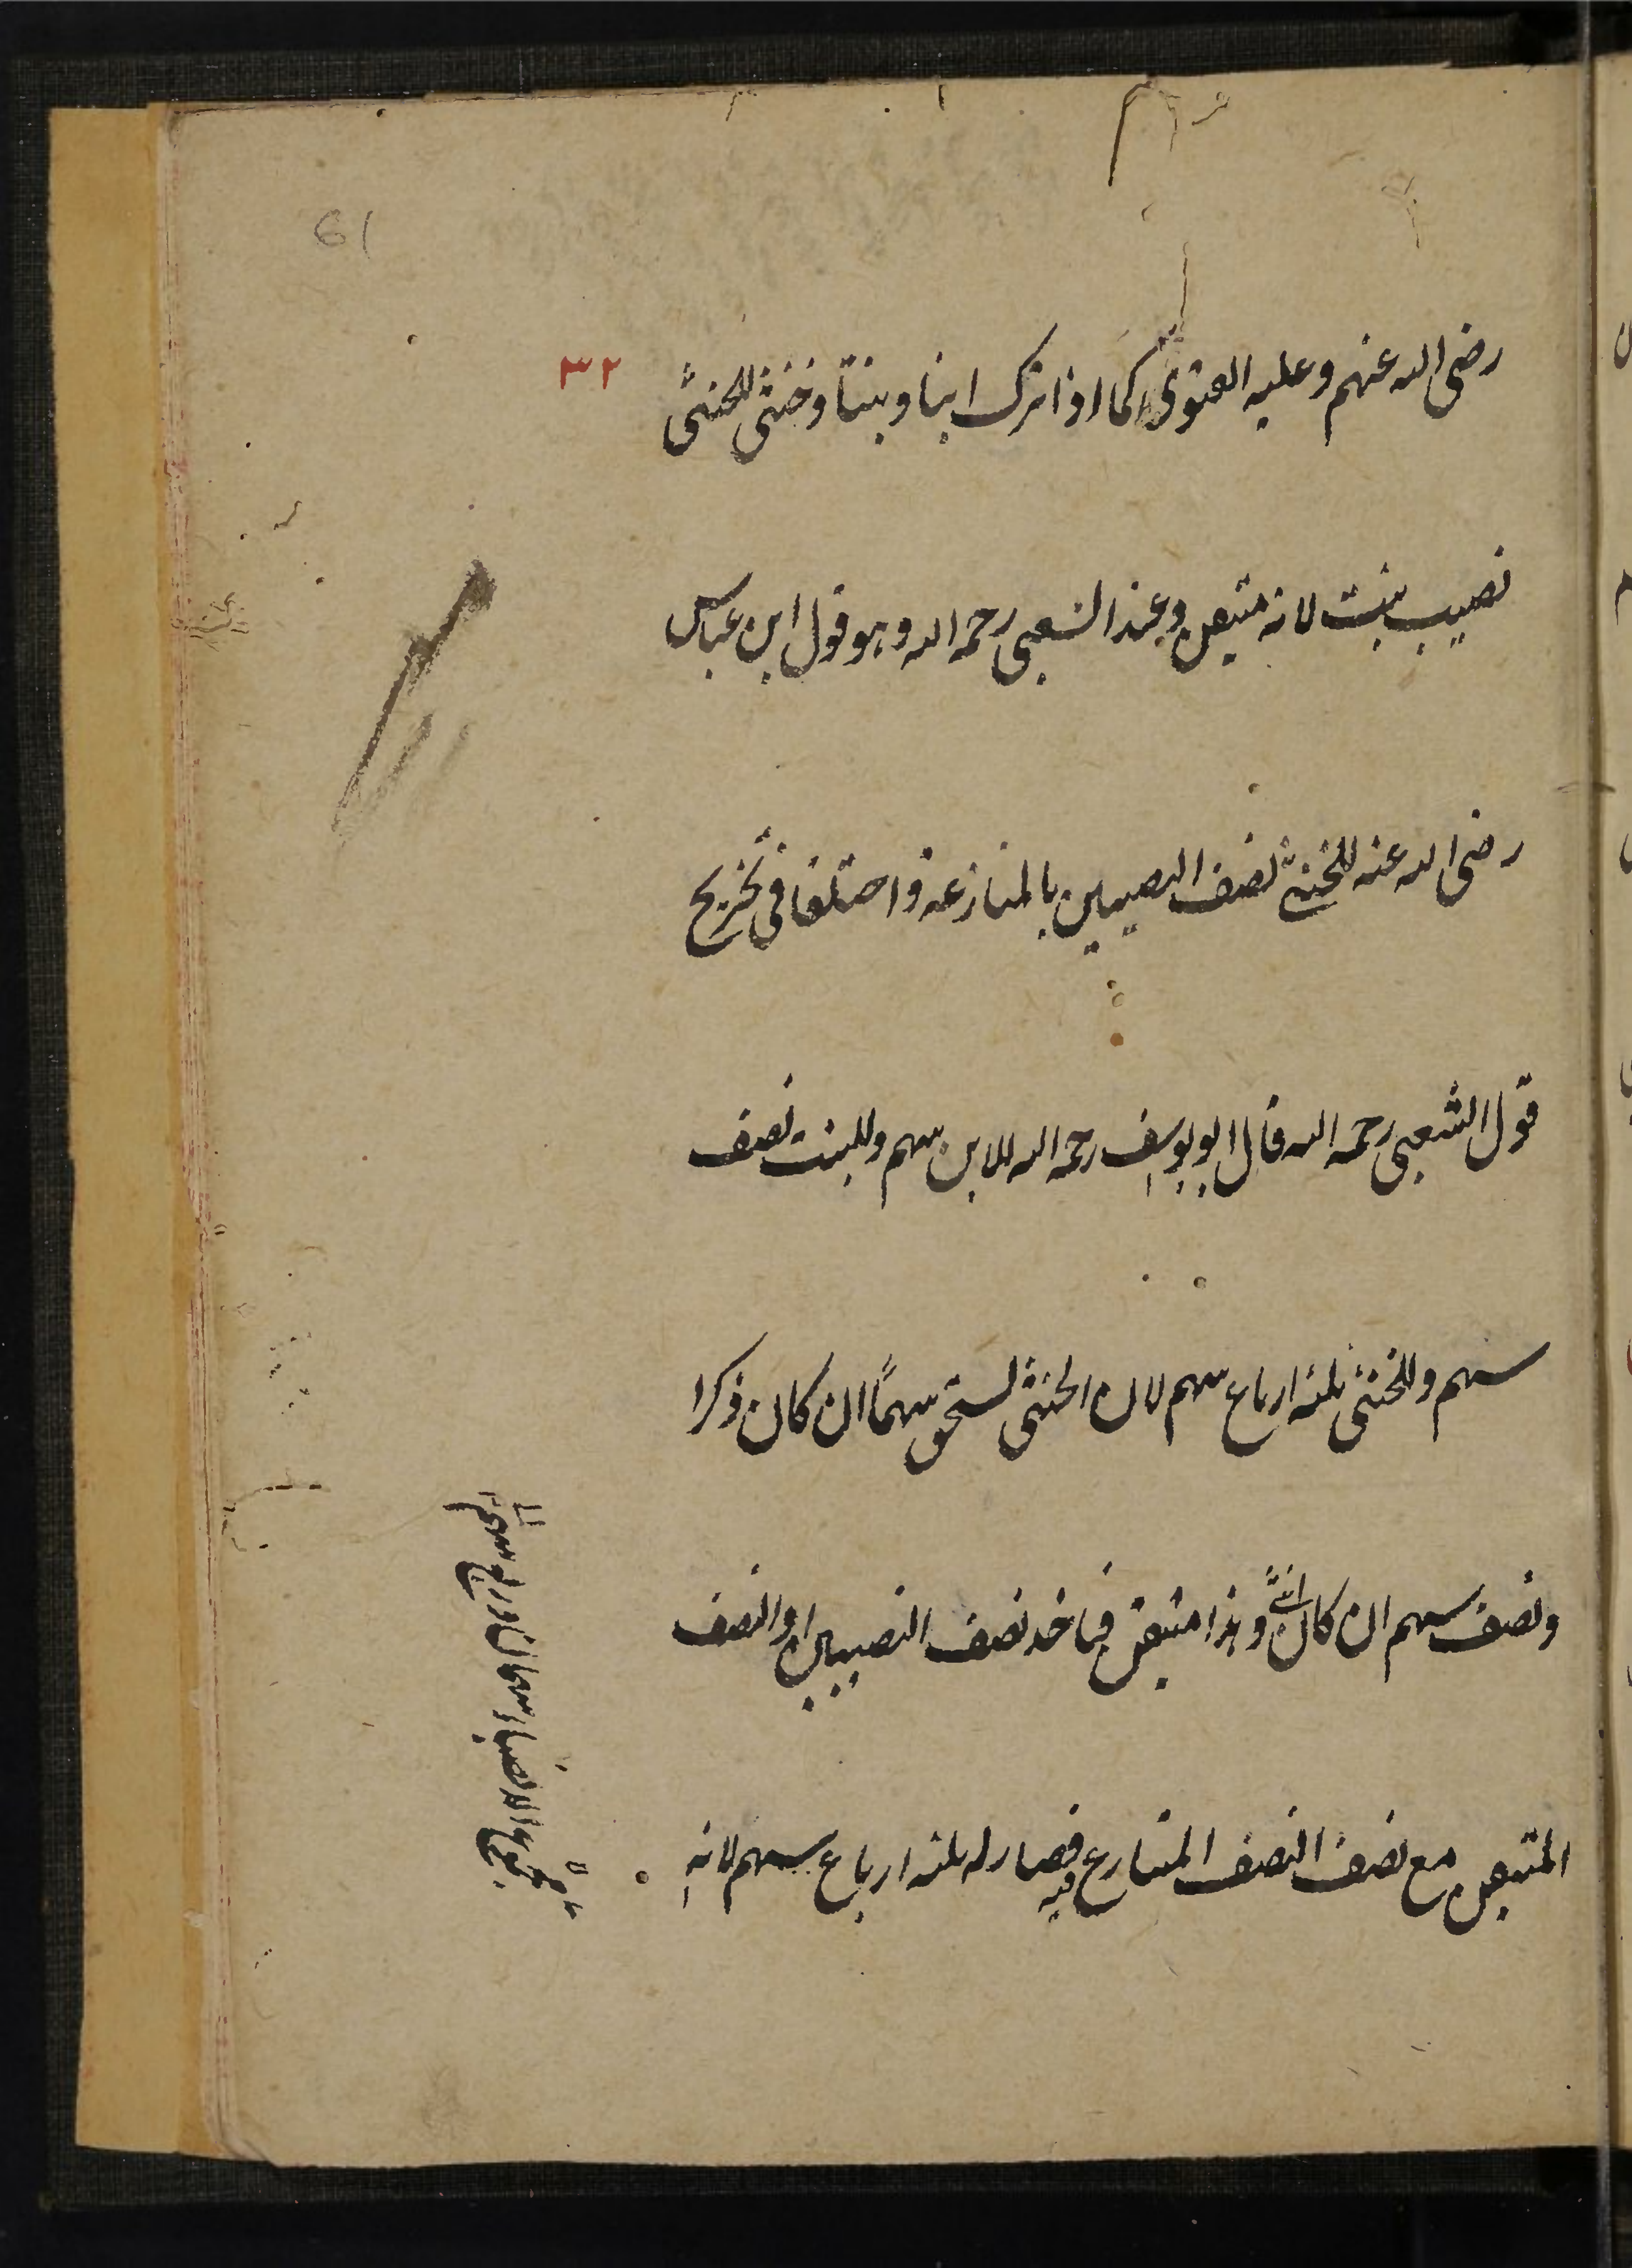 رضی الله عنهم وعلیه الفتوی کما اذا ترک ابنا وبنتا وخنثی للخنثی
٣٢
نصیب بنت لانه متیقن وعند الشعبی رحمه الله وهو قول ابن عباس
رضی الله عنه للخنثی نصف النصیبین بالمنازعة واختلفا فی تخریج
قول الشعبی رحمه الله قال ابو یوسف رحمه الله للابن سهم وللبنت نصف
سهم وللخنثی ثلثة ارباع سهم لان الخنثی یستحق سهمًا ان کان ذکرا
ونصف سهم ان کان انثی وهذا متیقن فیاخذ نصف النصیبین او النصف
المتیقن مع نصف النصف المتنازع فیه فصار له ثلثة ارباع سهم لانه
61